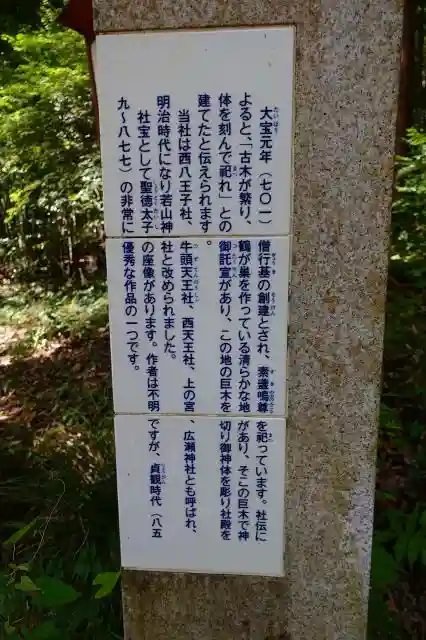 大宝元年（七〇一）僧行基の創建とされ、素盞嗚尊を祀っています。社伝に
よると、「古木が繁り、鶴が巣を作っている清らかな地があり、そこの巨木で神
体を刻んで祀れ」との御託宣があり、この地の巨木を切り御神体を彫り社殿を
建てたと伝えられます。
当社は西八王子社、牛頭天王社、西天王社、上の宮、広瀬神社とも呼ばれ、
明治時代になり若山神社と改められました。
社宝として聖徳太子の座像があります。作者は不明ですが、貞観時代（八五
九～八七七）の非常に優秀な作品の一つです。